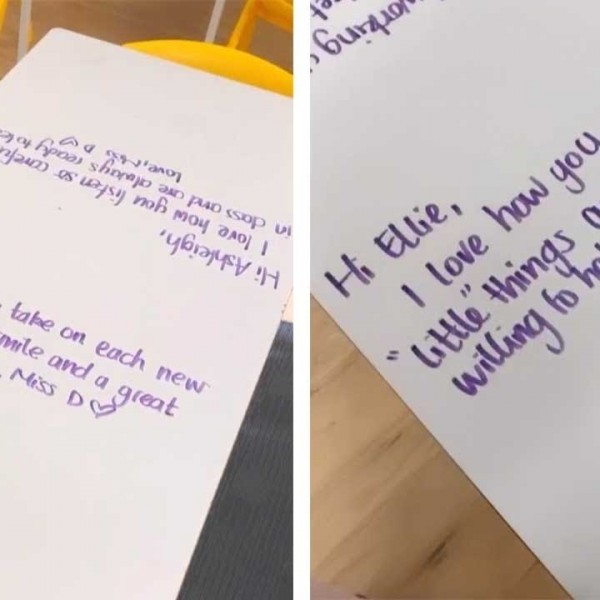 Hi Ashleigh,
I love how you listen so
in class and are always ready to
love, Miss D
take on each new
and a great
Miss D
working
Hi Ellie,
I love how you
"little" things
willing to